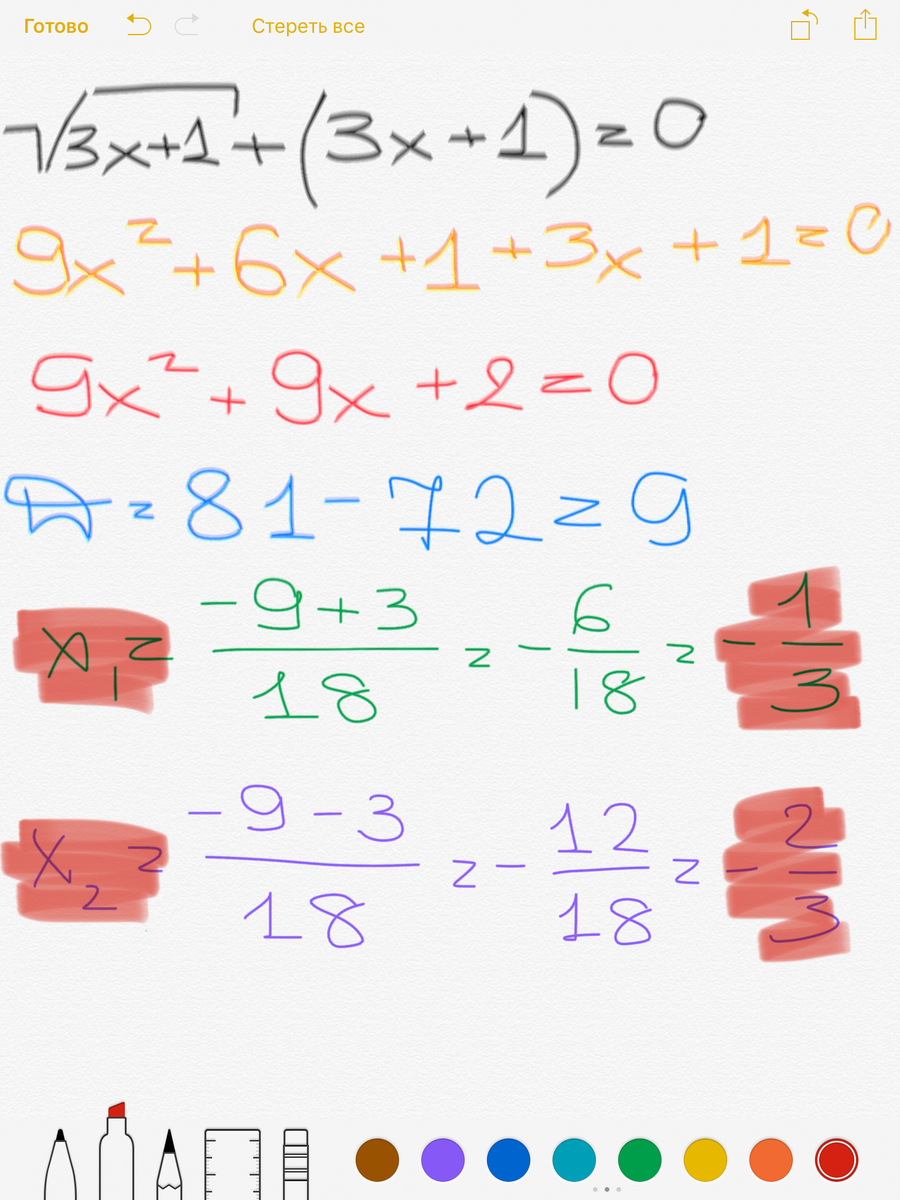 Готово Стереть все
√(3x+1) + (3x+1) = 0
9x² + 6x + 1 + 3x + 1 = 0
9x² + 9x + 2 = 0
D = 81 - 72 = 9
x₁ = (-9+3)/18 = -6/18 = -1/3
x₂ = (-9-3)/18 = -12/18 = -2/3